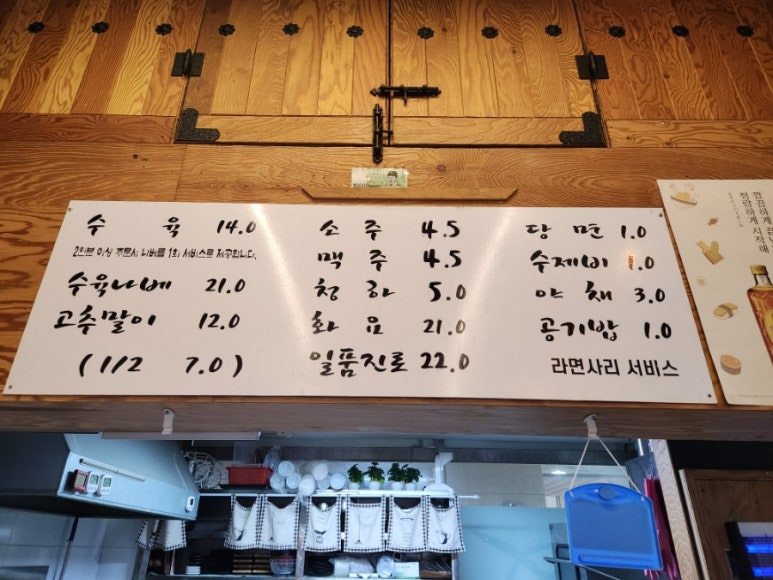 수육 14.0
2인분 이상 주문시 나베를 1회 서비스로 제공합니다.
수육나베 21.0
고추말이 12.0
(1/2 7.0)
소주 4.5
맥주 4.5
청하 5.0
화요 21.0
일품진로 22.0
당면 1.0
수제비 1.0
야채 3.0
공기밥 1.0
라면사리 서비스
깔끔하게
정갈하게 시작해